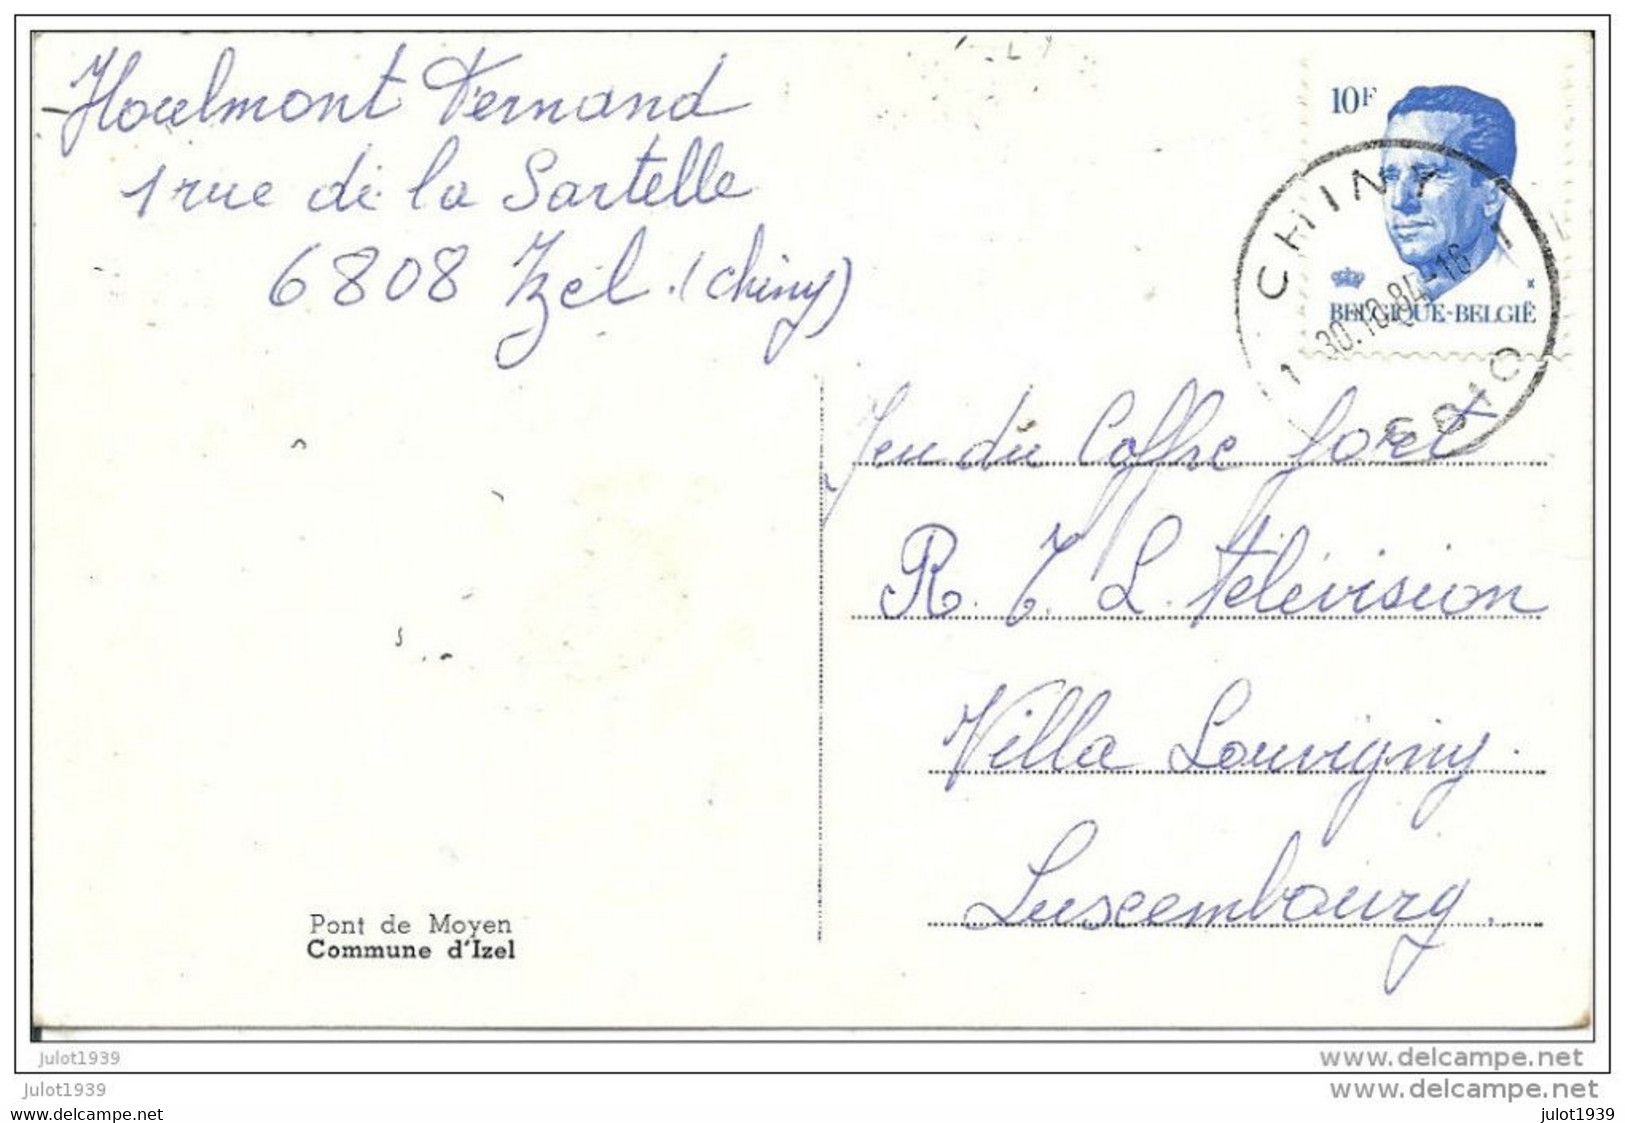 Houlmont Fernand
1 rue de la Sartelle
6808 Izel (Chiny)
10F
BELGIQUE-BELGIË
CHINY
1 1
30.10.84-16
6810
Jeu du Coffre fort
R.T.L. télévision
Villa Louvigny.
Luxembourg.
Pont de Moyen
Commune d'Izel
julot1939
www.delcampe.net
julot1939
www.delcampe.net
www.delcampe.net
julot1939